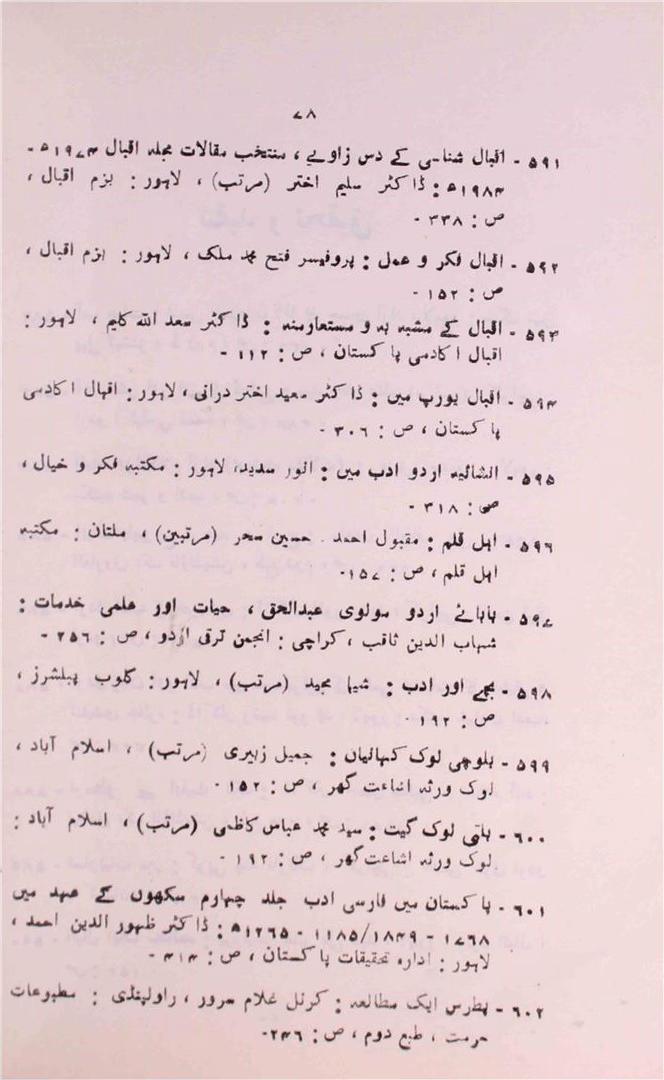 ۷۸
۵۹۱ - اقبال شناسی کے دس زاویے ، منتخب مقالات مجلہ اقبال ۱۹۷۳ء -
۱۹۸۳ء : ڈاکٹر سلیم اختر (مرتب) ، لاہور : بزم اقبال ،
ص : ۳۳۸ -
۵۹۲ - اقبال فکر و عمل : پروفیسر فتح محمد ملک ، لاہور : بزم اقبال ،
ص : ۱۵۲ -
۵۹۳ - اقبال کے مشبہ بہ و مستعارمنہ : ڈاکٹر سعد اللہ کلیم ، لاہور :
اقبال اکادمی پاکستان ، ص : ۱۱۲ -
۵۹۴ - اقبال یورپ میں : ڈاکٹر سعید اختر درانی ، لاہور : اقبال اکادمی
پاکستان ، ص : ۳۰۶ -
۵۹۵ - انشائیہ اردو ادب میں : انور سدید، لاہور : مکتبہ فکر و خیال ،
ص : ۳۱۸ -
۵۹۶ - اہل قلم : مقبول احمد حسین سحر (مرتبین) ، ملتان : مکتبہ
اہل قلم ، ص : ۱۵۷ -
۵۹۷ - بابائے اردو مولوی عبدالحق ، حیات اور علمی خدمات :
شہاب الدین ثاقب ، کراچی : انجمن ترقی اردو ، ص : ۲۵۶ -
۵۹۸ - بچے اور ادب : شیما مجید (مرتب) ، لاہور : گلوب پبلشرز ،
ص : ۱۹۲ -
۵۹۹ - بلوچی لوک کہانیاں : جمیل زبیری (مرتب) ، اسلام آباد ،
لوک ورثہ اشاعت گھر ، ص : ۱۵۲ -
۶۰۰ - بلتی لوک گیت : سید محمد عباس کاظمی (مرتب) ، اسلام آباد :
لوک ورثہ اشاعت گھر ، ص : ۱۹۲ -
۶۰۱ - پاکستان میں فارسی ادب جلد چہارم سکھوں کے عہد میں
۱۷۶۸ - ۱۸۴۹/۱۱۸۵ - ۱۲۶۵ء : ڈاکٹر ظہور الدین احمد ،
لاہور : ادارہ تحقیقات پاکستان ، ص : ۴۱۴ -
۶۰۲ - پطرس ایک مطالعہ : کرنل غلام سرور ، راولپنڈی : مطبوعات
حرمت ، طبع دوم ، ص : ۲۴۶ -